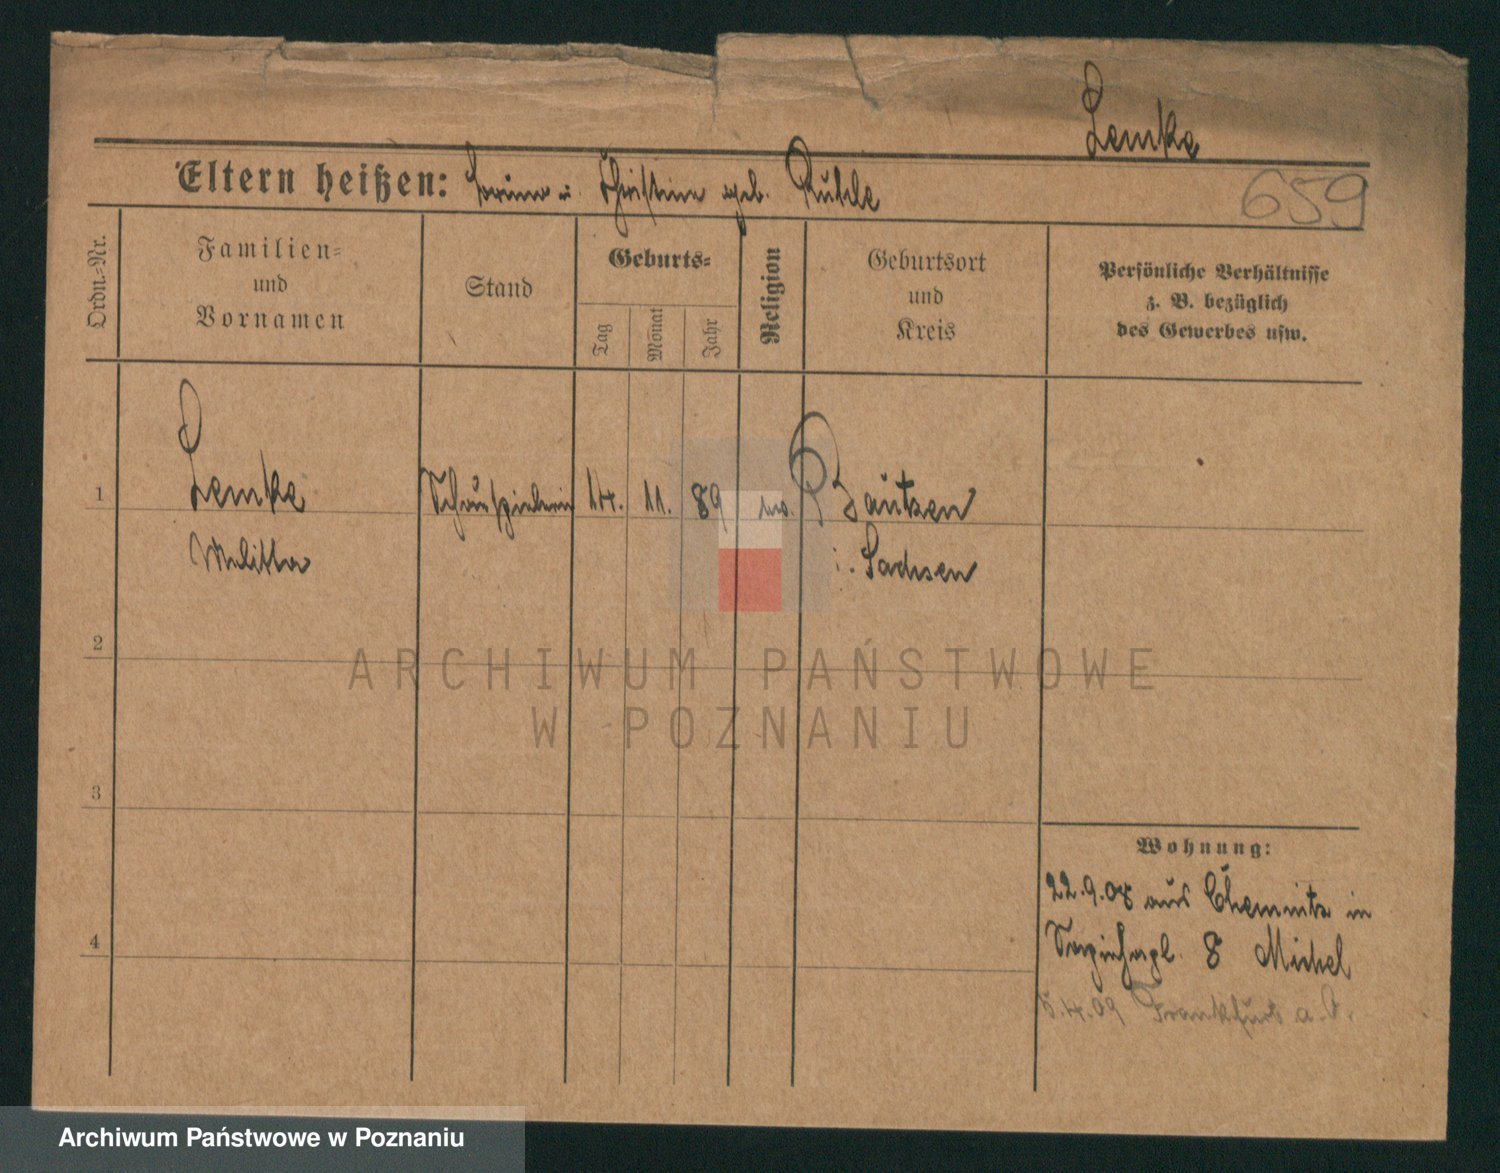 Lemke
Eltern heißen: u. Christine geb.
659
Ordn.-Nr.
Familien-
und
Vornamen
Stand
Geburts-
Tag
Monat
Jahr
Religion
Geburtsort
und
Kreis
Persönliche Verhältnisse
z. B. bezüglich
des Gewerbes usw.
1
Lemke
Schauspielerin
14.
11.
89
Bautzen
Melitta
i. Sachsen
2
3
4
Wohnung:
22.9.08 aus Chemnitz in
8 Michel
5.4.09 Frankfurt a. O.
ARCHIWUM PAŃSTWOWE
W POZNANIU
Archiwum Państwowe w Poznaniu